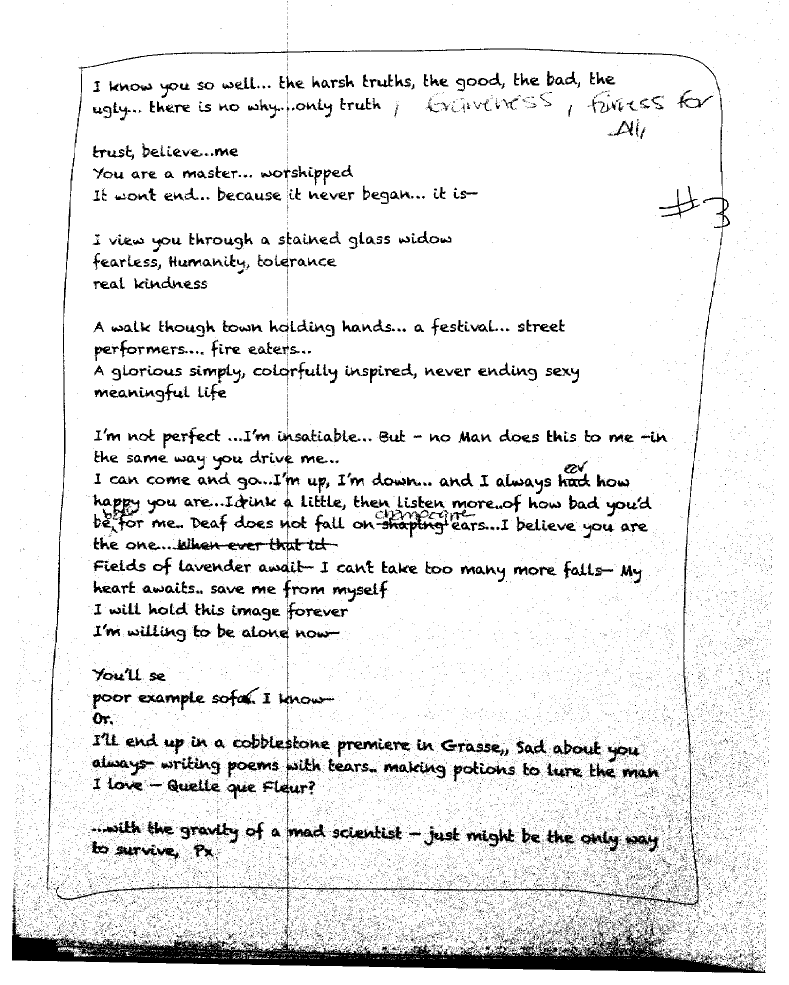 I know you so well... the harsh truths, the good, the bad, the
ugly... there is no why....only truth , Forgiveness , fairness for
All,
trust, believe...me
You are a master... worshipped
It wont end... because it never began... it is—
#3
I view you through a stained glass widow
fearless, Humanity, tolerance
real kindness
A walk though town holding hands... a festival... street
performers.... fire eaters...
A glorious simply, colorfully inspired, never ending sexy
meaningful life
I'm not perfect ...I'm insatiable... But - no Man does this to me -in
the same way you drive me...
I can come and go...I'm up, I'm down... and I always had how
happy you are...I drink a little, then listen more..of how bad you'd
be for me.. Deaf does not fall on champagne shaping ears...I believe you are
the one....When ever that td
Fields of lavender await— I can't take too many more falls— My
heart awaits.. save me from myself
I will hold this image forever
I'm willing to be alone now—
You'll se
poor example sofar. I know—
Or.
I'll end up in a cobblestone premiere in Grasse,, Sad about you
always- writing poems with tears.. making potions to lure the man
I love — Quelle que Fleur?
...with the gravity of a mad scientist - just might be the only way
to survive, Px